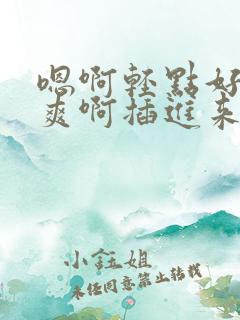 嗯啊轻點好
爽啊插進来
小鈺姐
未经同意禁止转载